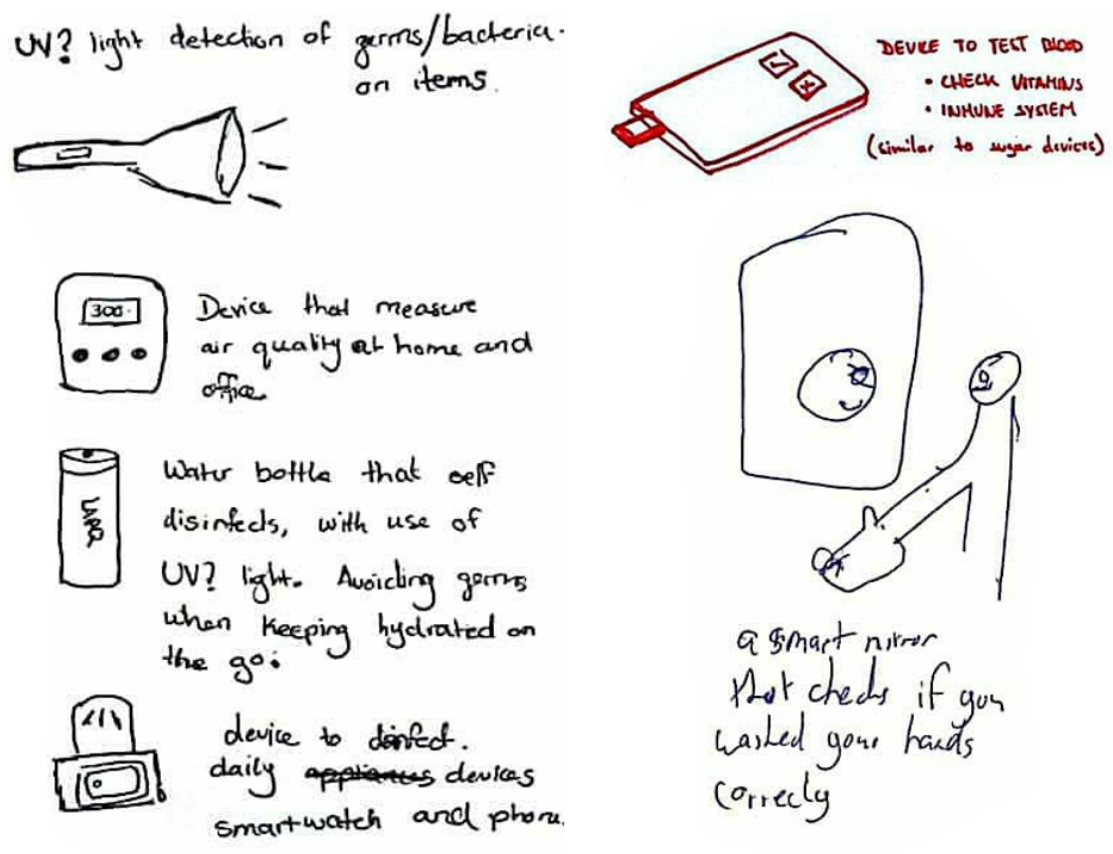 UV? light detection of germs/bacteria.
on items.
300.
Device that measure
air quality at home and
office.
LARQ
Water bottle that self
disinfects, with use of
UV? light. Avoiding germs
when keeping hydrated on
the go.
device to disinfect.
daily appliances devices
smartwatch and phone.
DEVICE TO TEST BLOOD
• CHECK VITAMINS
• INMUNE SYSTEM
(similar to sugar devices)
a smart mirror
that checks if you
washed your hands
correctly